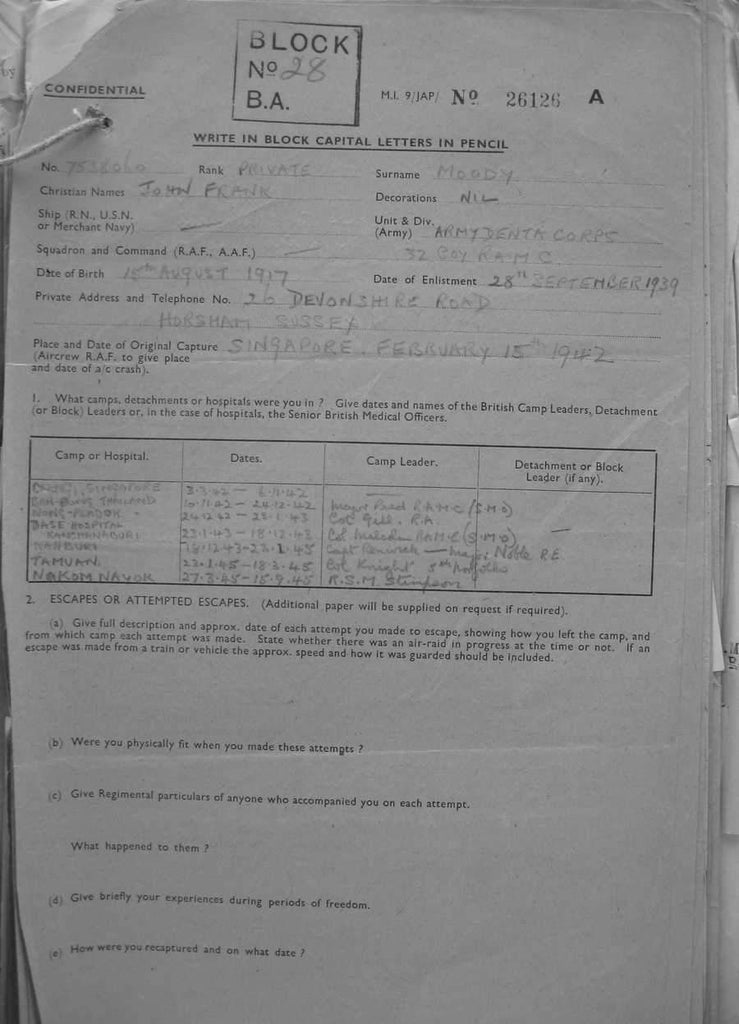 BLOCK
Nº 28
B.A.
CONFIDENTIAL
M.I. 9/JAP/ Nº 26126 A
WRITE IN BLOCK CAPITAL LETTERS IN PENCIL
No. 7538060 Rank PRIVATE Surname MOODY
Christian Names JOHN FRANK Decorations NIL
Ship (R.N., U.S.N.
or Merchant Navy)
Unit & Div.
(Army) ARMY DENTAL CORPS
32 COY R.A.M.C.
Squadron and Command (R.A.F., A.A.F.)
Date of Birth 15th AUGUST 1917 Date of Enlistment 28TH SEPTEMBER 1939
Private Address and Telephone No. 26 DEVONSHIRE ROAD
HORSHAM SUSSEX
Place and Date of Original Capture SINGAPORE. FEBRUARY 15th 1942
(Aircrew R.A.F. to give place
and date of a/c crash).
1. What camps, detachments or hospitals were you in ? Give dates and names of the British Camp Leaders, Detachment
(or Block) Leaders or, in the case of hospitals, the Senior British Medical Officers.
Camp or Hospital. Dates. Camp Leader. Detachment or Block
Leader (if any).
CHANGI, SINGAPORE 3.3.42
THAILAND 10.11.42 – 24.12.42 Major R.A.M.C (S.M.O)
NONG-PLADOK 24.12.42 – 23.1.43 Col Gill. R.A.
BASE HOSPITAL
KANCHANABURI 23.1.43 – 18.12.43 Col R.A.M.C (S.M.O)
18.12.43–23.1.45 Capt – Major Noble R.E.
TAMUAN. 23.1.45 – 18.3.45 Col Knight 5th Norfolks
NAKOM NAYOK 27.3.45 – 15.9.45 R.S.M. Stimpson
2. ESCAPES OR ATTEMPTED ESCAPES. (Additional paper will be supplied on request if required).
(a) Give full description and approx. date of each attempt you made to escape, showing how you left the camp, and
from which camp each attempt was made. State whether there was an air-raid in progress at the time or not. If an
escape was made from a train or vehicle the approx. speed and how it was guarded should be included.
(b) Were you physically fit when you made these attempts ?
(c) Give Regimental particulars of anyone who accompanied you on each attempt.
What happened to them ?
(d) Give briefly your experiences during periods of freedom.
(e) How were you recaptured and on what date ?